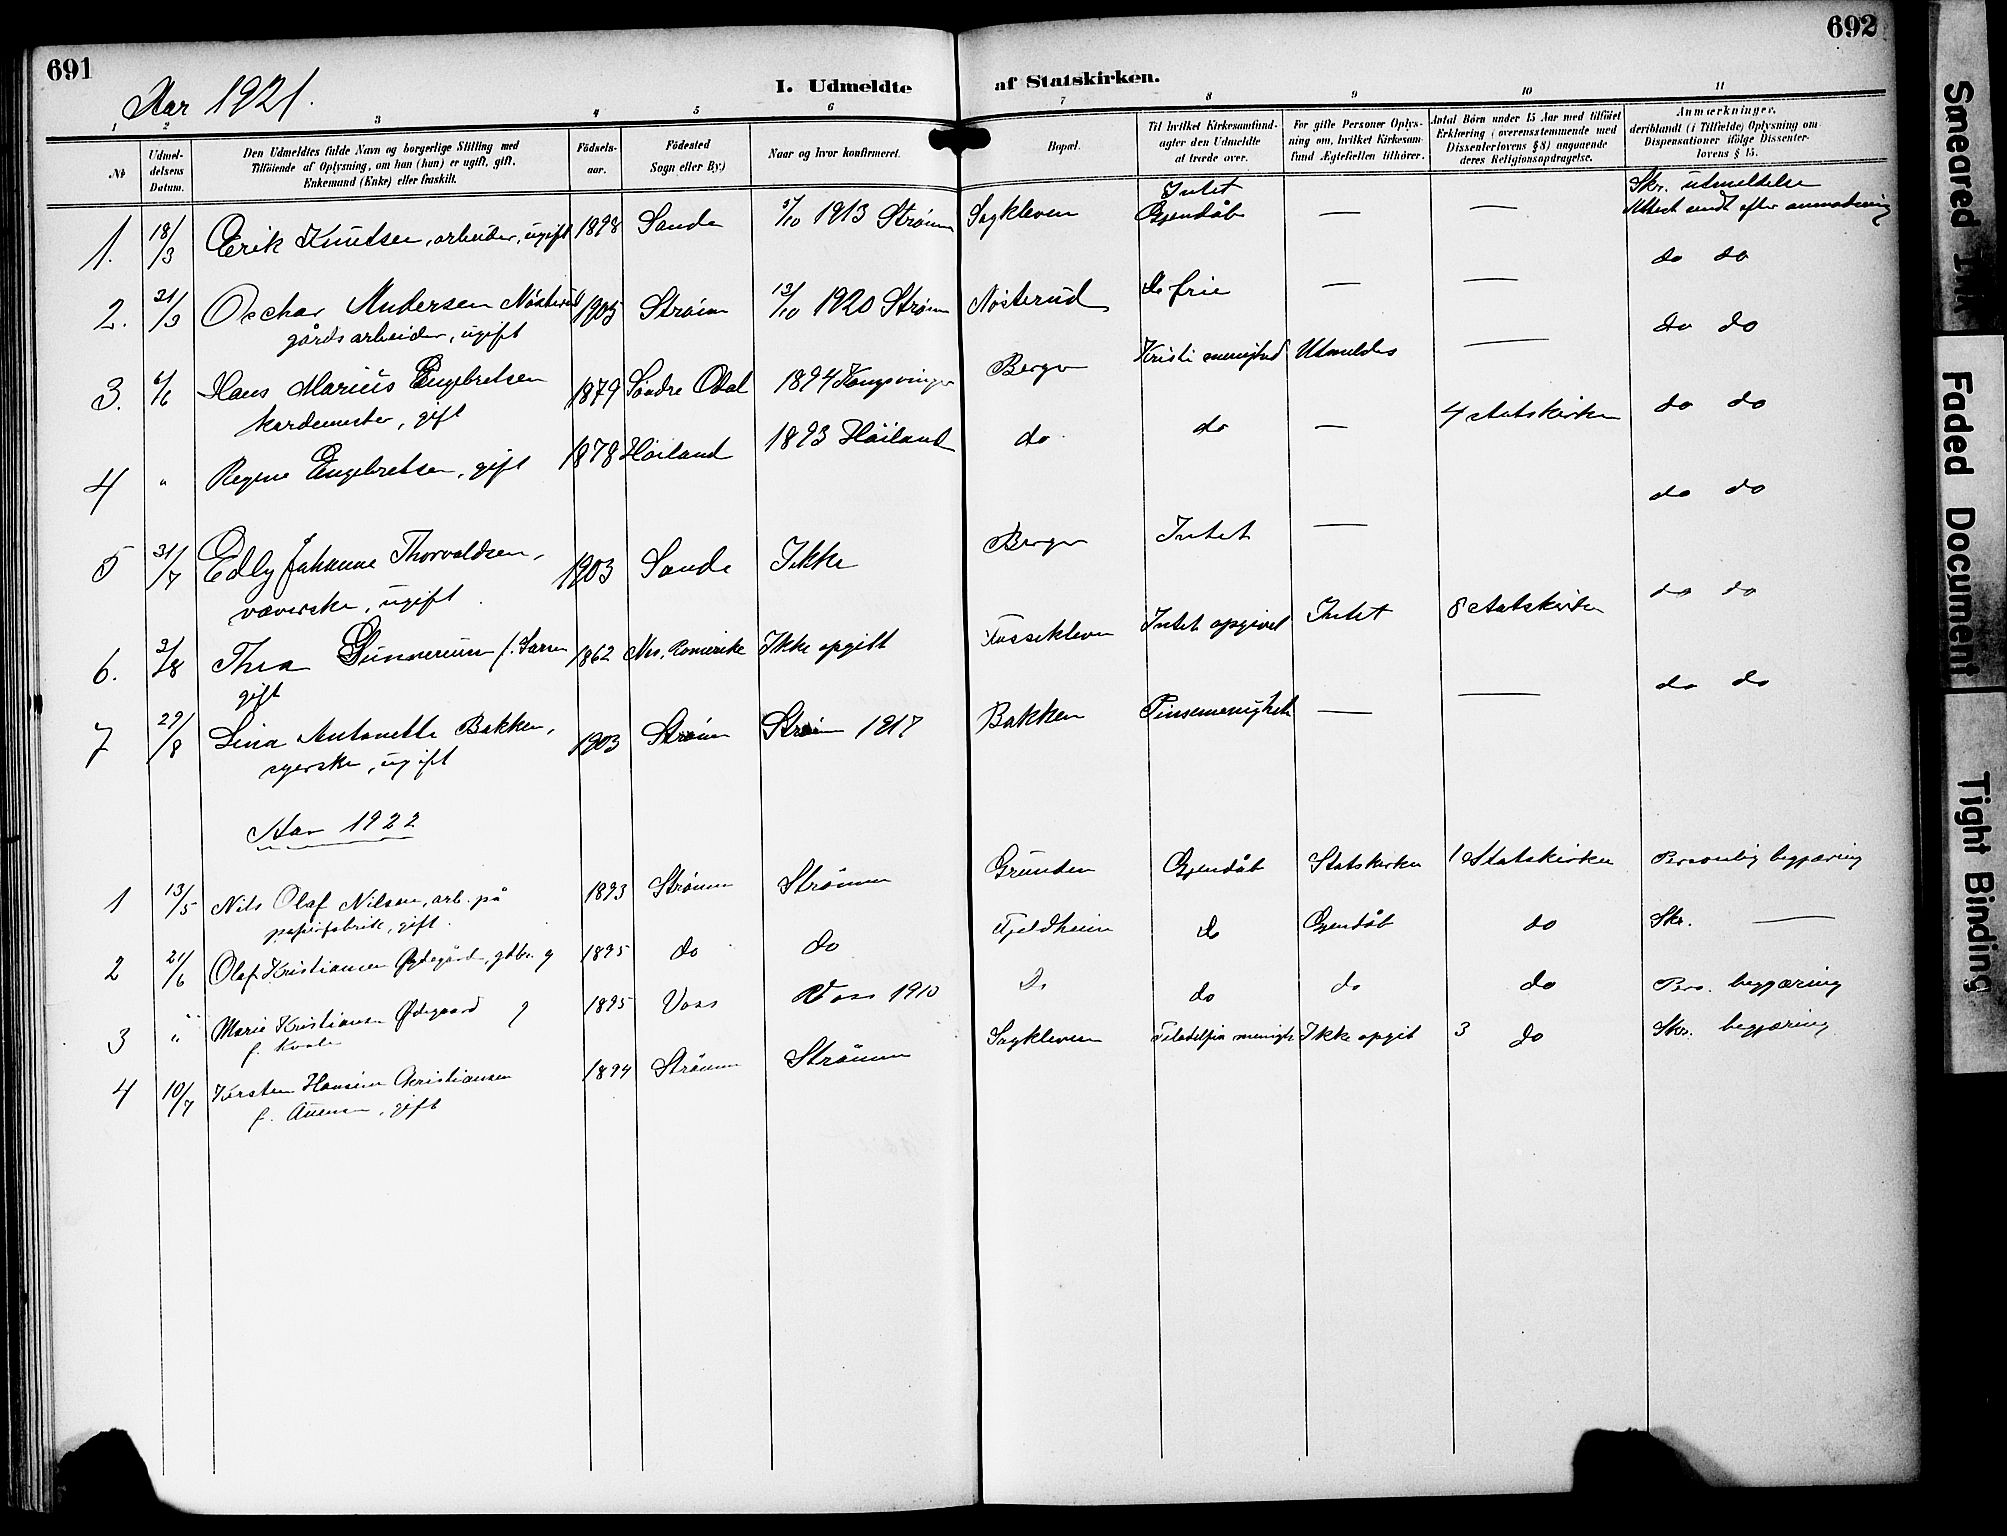 691
692
Aar 1921.
I. Udmeldte af Statskirken.
1 2 3 4 5 6 7 8 9 10 11
No
Udmeldelsens Datum.
Den Udmeldtes fulde Navn og borgerlige Stilling med
Tilføiende af Oplysning, om han (hun) er ugift, gift,
Enkemand (Enke) eller fraskilt.
Fødselsaar.
Fødested
Sogn eller By.)
Naar og hvor konfirmeret.
Bopæl.
Til hvilket Kirkesamfund
agter den Udmeldte
at træde over.
For gifte Personer Oplysning om, hvilket Kirkesamfund Ægtefællen tilhører.
Antal Børn under 15 Aar med tilføiet
Erklæring i overensstemmende med
Dissenterlovens § 8) angaaende
deres Religionsopdragelse.
Anmærkninger,
deriblandt (i Tilfælde) Oplysning om
Dispensationer ifølge Dissenterlovens § 15.
1. 18/3 Erik Knutsen, arbeider, ugift 1898 Sande 5/10 1913 Strømm Sagkleven Intet Gjendåb — — Skr. utmeldelse Attest sendt efter anmodning
2. 21/3 Oschar Andersen Nøsterud gårdsarbeider, ugift 1905 Strøm 13/10 1920 Strøm Nøsterud De frie — — do do
3. 6/6 Hans Marius Engebretsen kardemester, gift 1879 Søndre Odal 1894 Kongsvinger Berger Kristi menighed Utmeldes — do do
4 " Regine Engebretsen, gift 1878 Høiland 1893 Høiland do do — 4 statskirken do do
5 31/7 Edly Johanne Thorvaldsen, væverske, ugift 1903 Sande Ikke Berger Intet — do do
6. 3/8 Thea Gunnerius f. Larsen gift 1862 Nes, Romerike Ikke opgitt Fossekleven Intet opgivet Intet 8 statskirken do do
7 29/8 Lina Antonette Bakken, syerske, ugift 1903 Strøm Strøm 1917 Bakken Pinsemenighet — — do do
Aar 1922
1 13/5 Nils Olaf Nilsen, arb. på papirfabrik, gift. 1893 Strømm Strømm Grunden Gjendåb Statskirken 1 Statskirken Personlig begjæring
2 21/6 Olaf Kristiansen Ødegård, gdbr. g 1895 do do Fjeldheim do Gjendåb do Skr. —
3 " Marie Kristiansen Ødegaard g f. Kvale 1895 Voss Voss 1910 Do do do do Pers. begjæring
4 10/7 Kirsten Hansine Christiansen f. Auensen, gift 1894 Strømm Strømm Sagkleven Filadelfia menigh Ikke opgit 3 do Skr. begjæring
Smeared Ink
Faded Document
Tight Binding